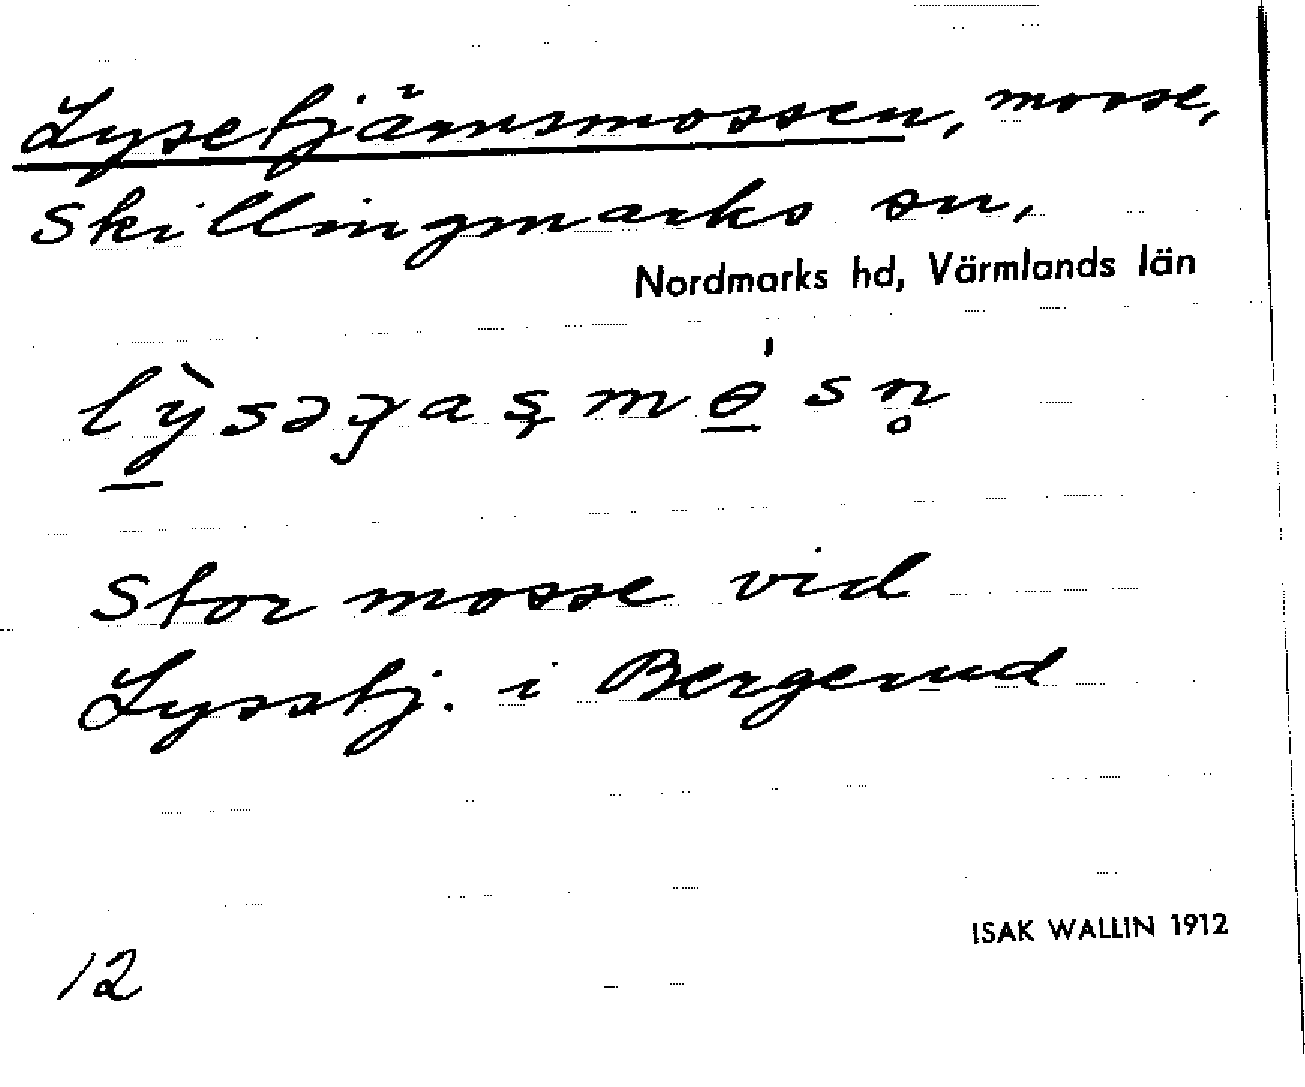 Lysetjärnsmossen, mosse,
Skillingmarks sn,
Nordmarks hd, Värmlands län
Stor mosse vid
Lysstj. i Bergerud
ISAK WALLIN 1912
12